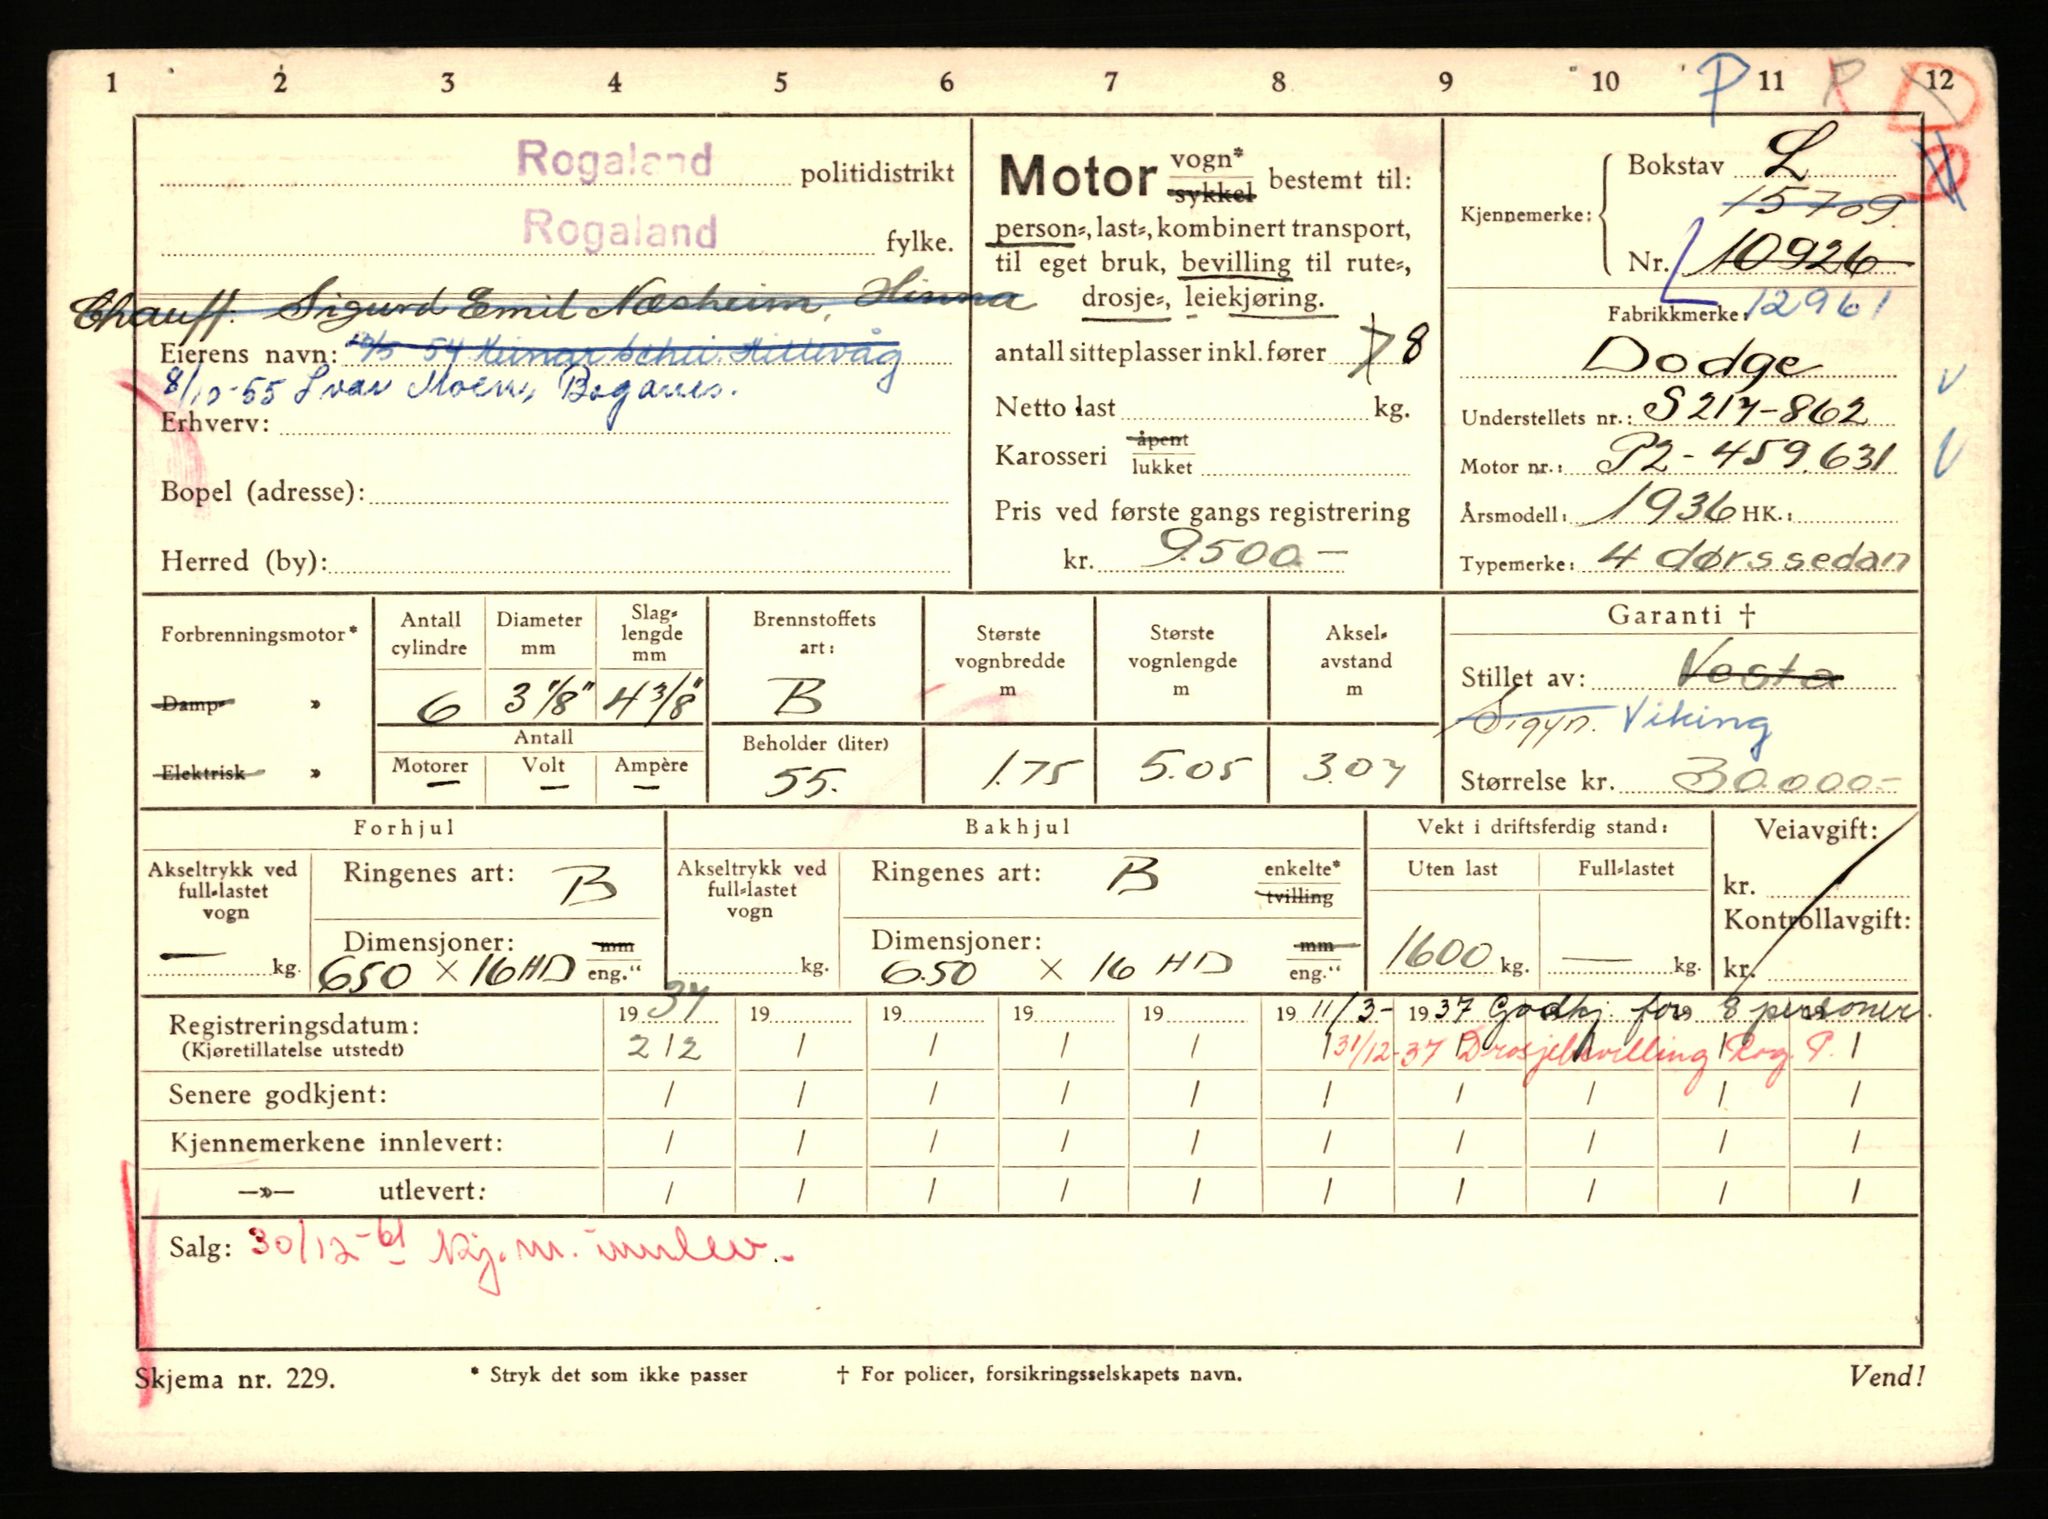 1 2 3 4 5 6 7 8 9 10 11 12
P P D
Rogaland politidistrikt
Rogaland fylke.
Chauff. Sigurd Emil Næsheim, Hinna
Eierens navn: 54 Hillevåg
8/10-55 Ivar Moen, Boganes.
Erhverv:
Bopel (adresse):
Herred (by):
Motor vogn* sykkel bestemt til:
person-, last-, kombinert transport,
til eget bruk, bevilling til rute-,
drosje-, leiekjøring.
antall sitteplasser inkl. fører 7 8
Netto last kg.
Karosseri åpent lukket
Pris ved første gangs registrering
kr. 9.500.—
Kjennemerke: Bokstav L
15709
Nr. 10926
Fabrikkmerke: 12961
Dodge
Understellets nr.: S217-862
Motor nr.: P2-459.631
Årsmodell: 1936 HK.:
Typemerke: 4 dørs sedan
Forbrenningsmotor*
Damp- »
Elektrisk »
Antall cylindre 6
Diameter mm 3 1/8"
Slag-lengde mm 4 3/8"
Antall
Motorer — Volt — Ampère —
Brennstoffets art: B
Beholder (liter) 55.
Største vognbredde m 1.75
Største vognlengde m 5.05
Aksel-avstand m 3.07
Garanti †
Stillet av: Vesta
Sigyn. Viking
Størrelse kr. 30.000.-
Forhjul
Akseltrykk ved full-lastet vogn — kg.
Ringenes art: B
Dimensjoner: mm
650 × 16 HD eng."
Bakhjul
Akseltrykk ved full-lastet vogn kg.
Ringenes art: B enkelte* tvilling
Dimensjoner: mm
6.50 × 16 HD eng."
Vekt i driftsferdig stand:
Uten last 1600 kg.
Full-lastet — kg.
Veiavgift:
kr.
Kontrollavgift:
kr.
Registreringsdatum: 19 37 19 19 19 19 19 11/3- 19 37 Godkj. for 8 personer.
(Kjøretillatelse utstedt) 2 / 2 / / / / 31/12-37 Drosjebevilling Rog. P. /
Senere godkjent: / / / / / / / / / /
Kjennemerkene innlevert: / / / / / / / / / /
—»— utlevert: / / / / / / / / / /
Salg: 30/12-61 Kj.m. innlev.-
Skjema nr. 229. * Stryk det som ikke passer † For policer, forsikringsselskapets navn. Vend!